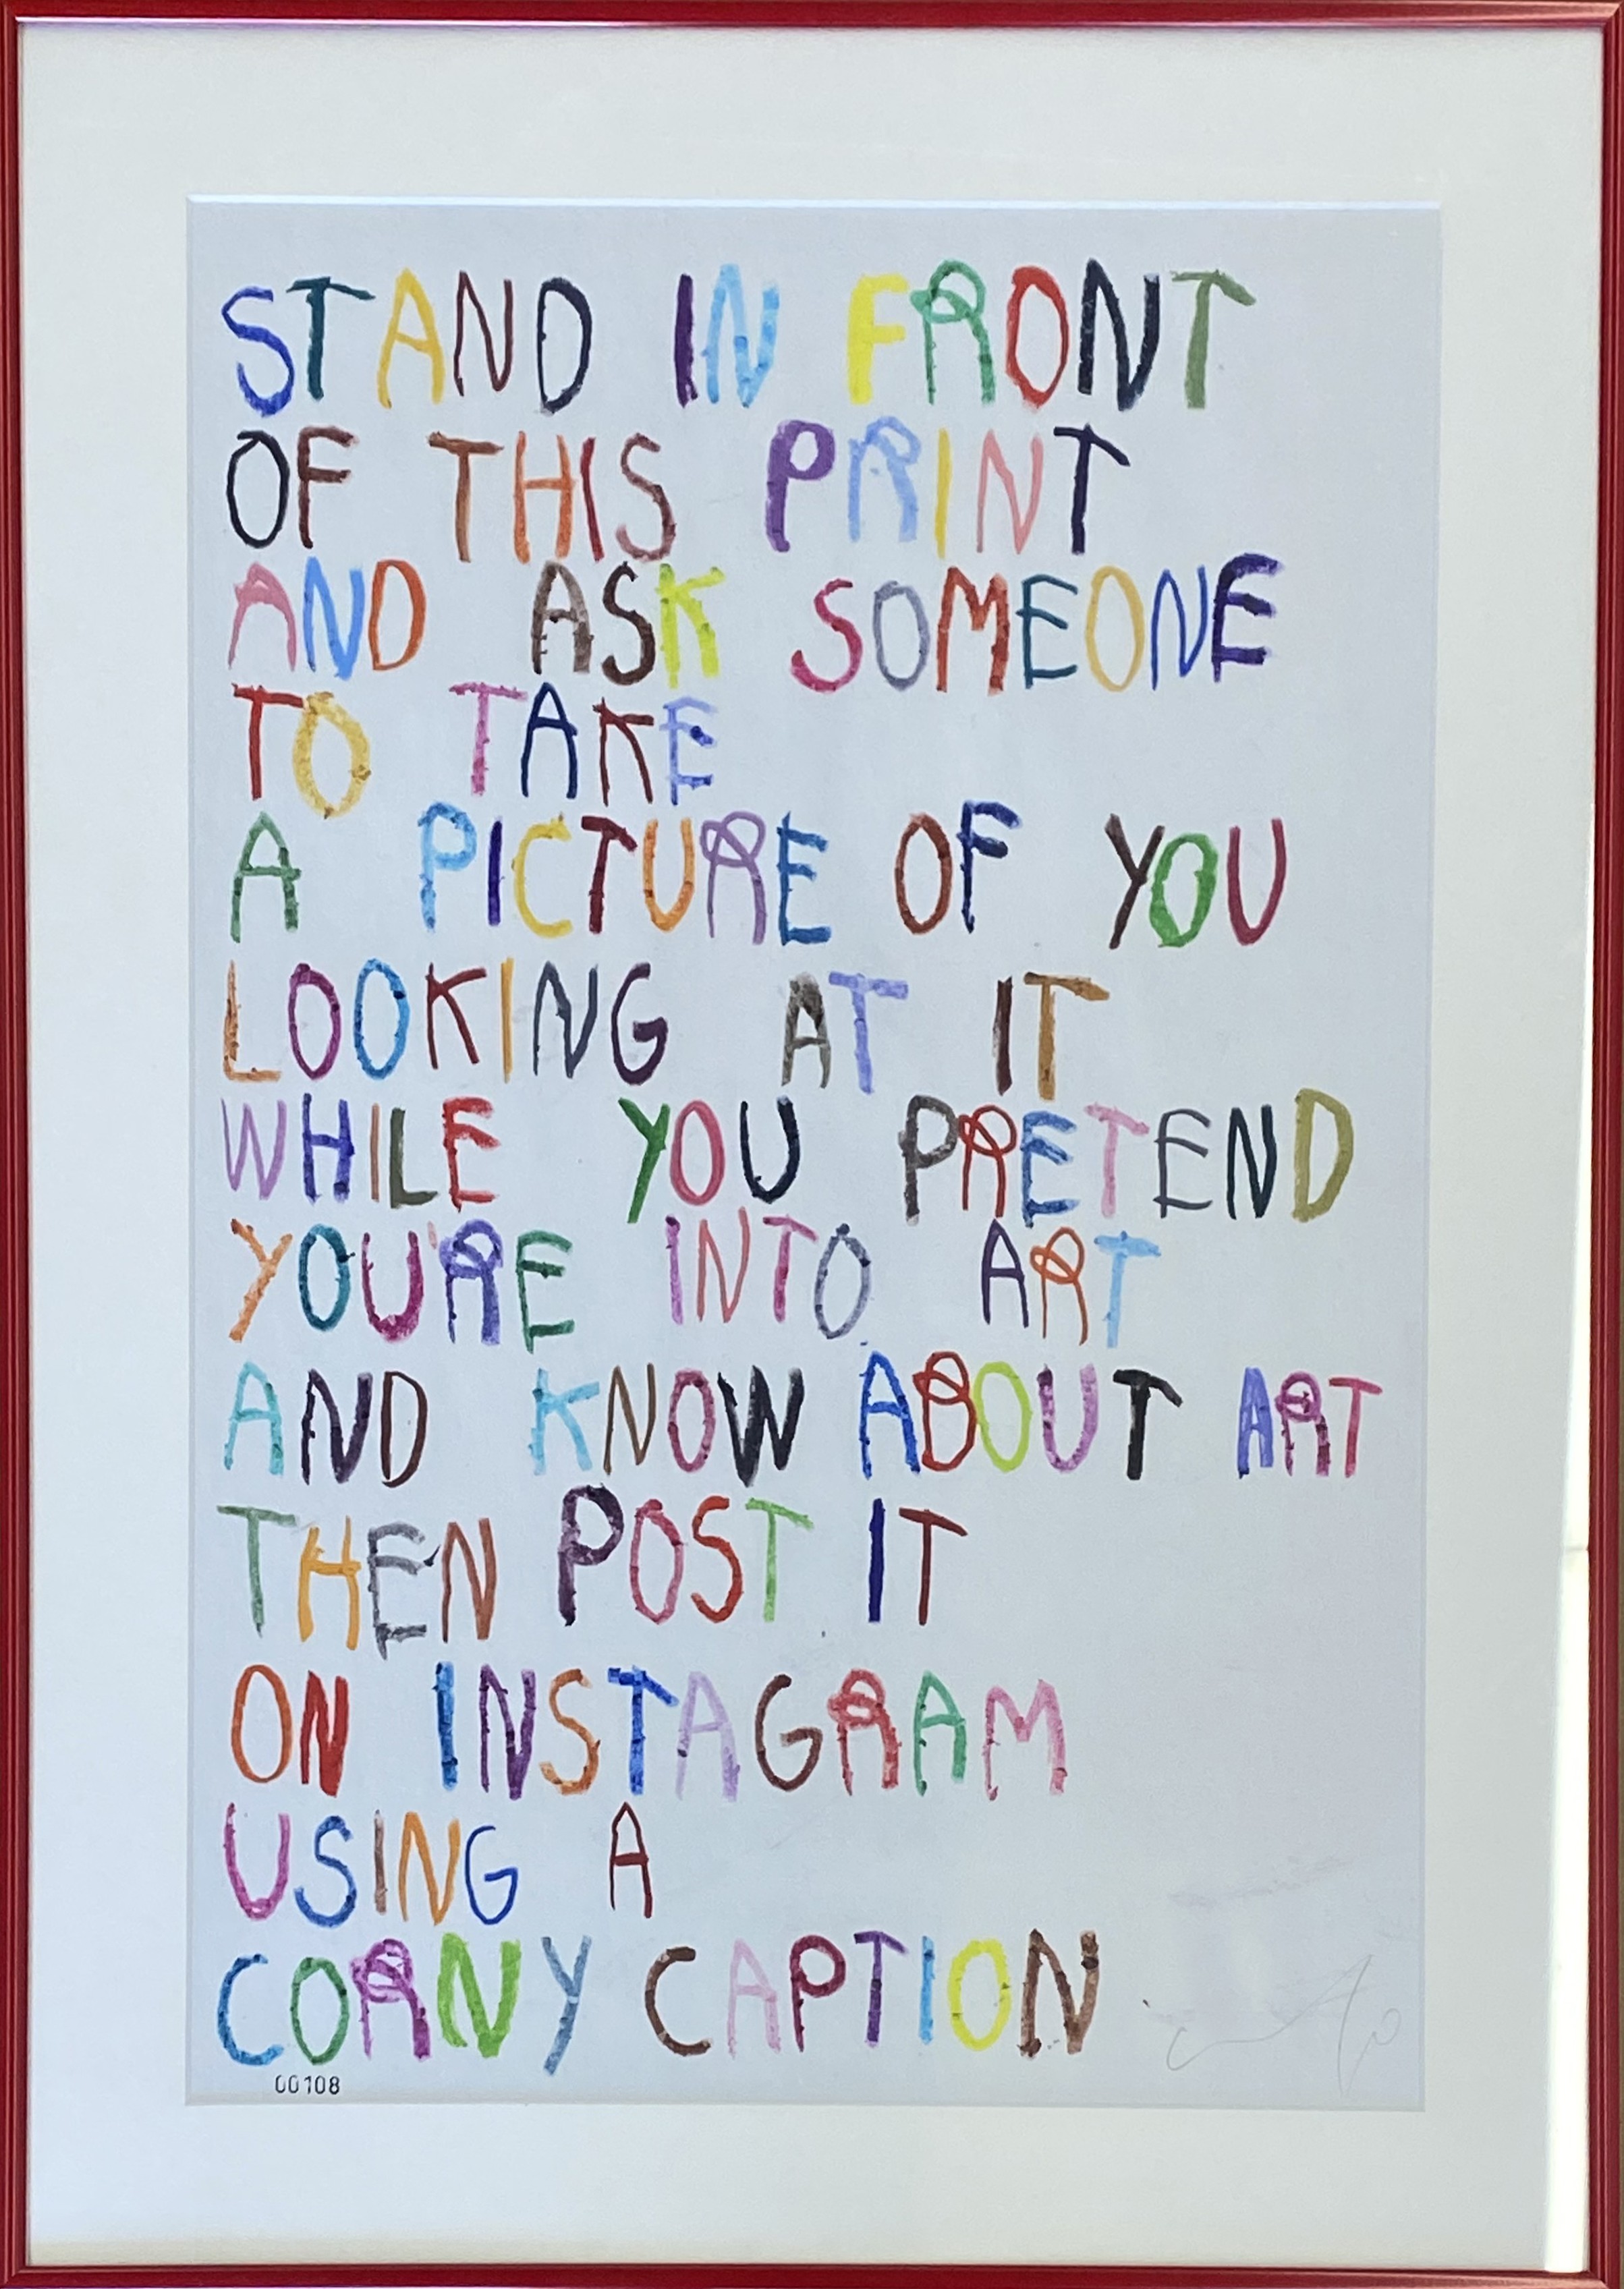 STAND IN FRONT
OF THIS PRINT
AND ASK SOMEONE
TO TAKE
A PICTURE OF YOU
LOOKING AT IT
WHILE YOU PRETEND
YOU'RE INTO ART
AND KNOW ABOUT ART
THEN POST IT
ON INSTAGRAM
USING A
CORNY CAPTION
00108